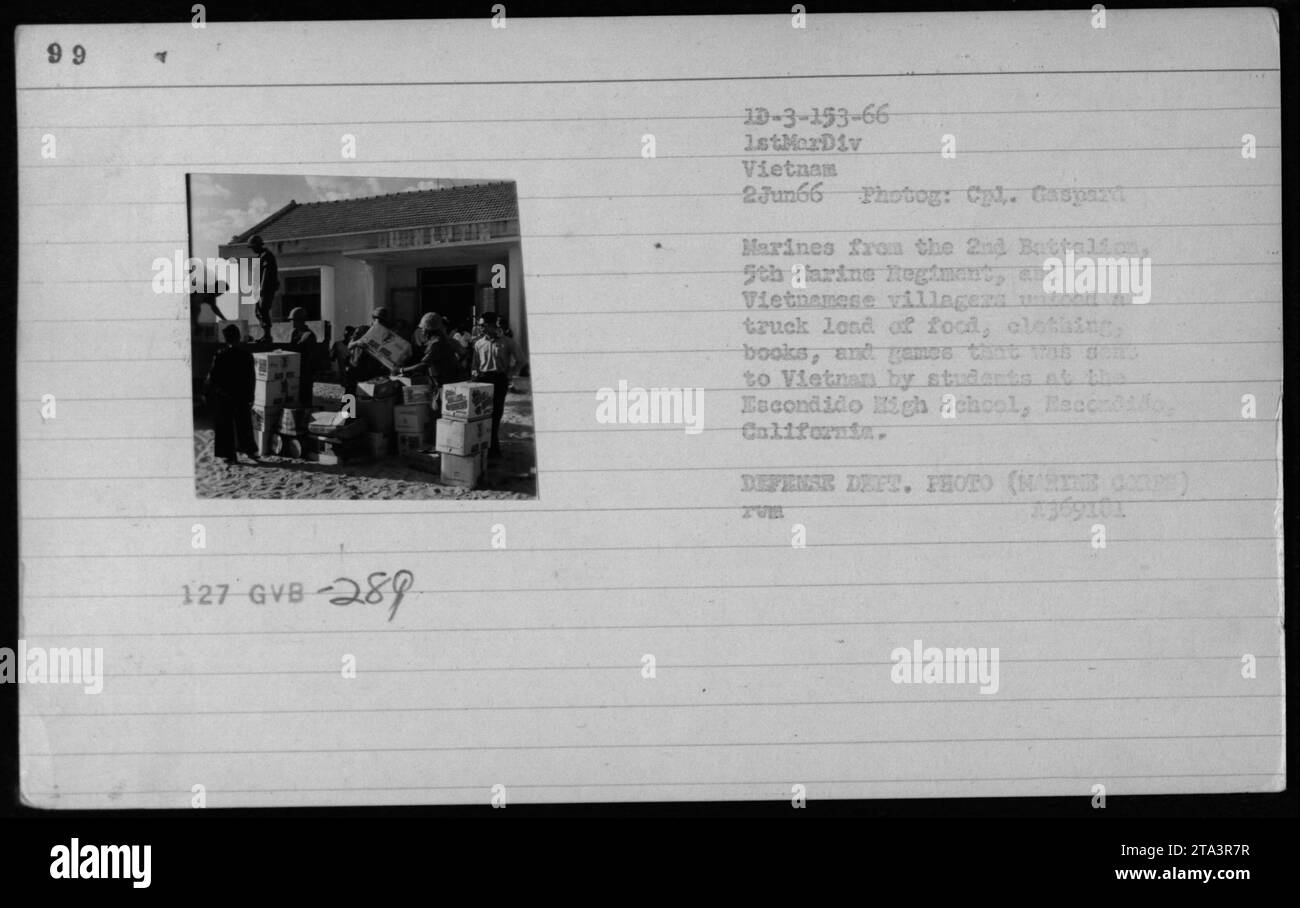 99
1D-3-153-66
1stMarDiv
Vietnam
2Jun66 Photog: Cpl. Gaspard
Marines from the 2nd Battalion,
5th Marine Regiment, and
Vietnamese villagers unload a
truck load of food, clothing,
books, and games that was sent
to Vietnam by students at the
Escondido High School, Escondido,
California.
DEFENSE DEPT. PHOTO (MARINE CORPS)
rwm A369181
127 GVB -289
alamy
Image ID: 2TA3R7R
www.alamy.com